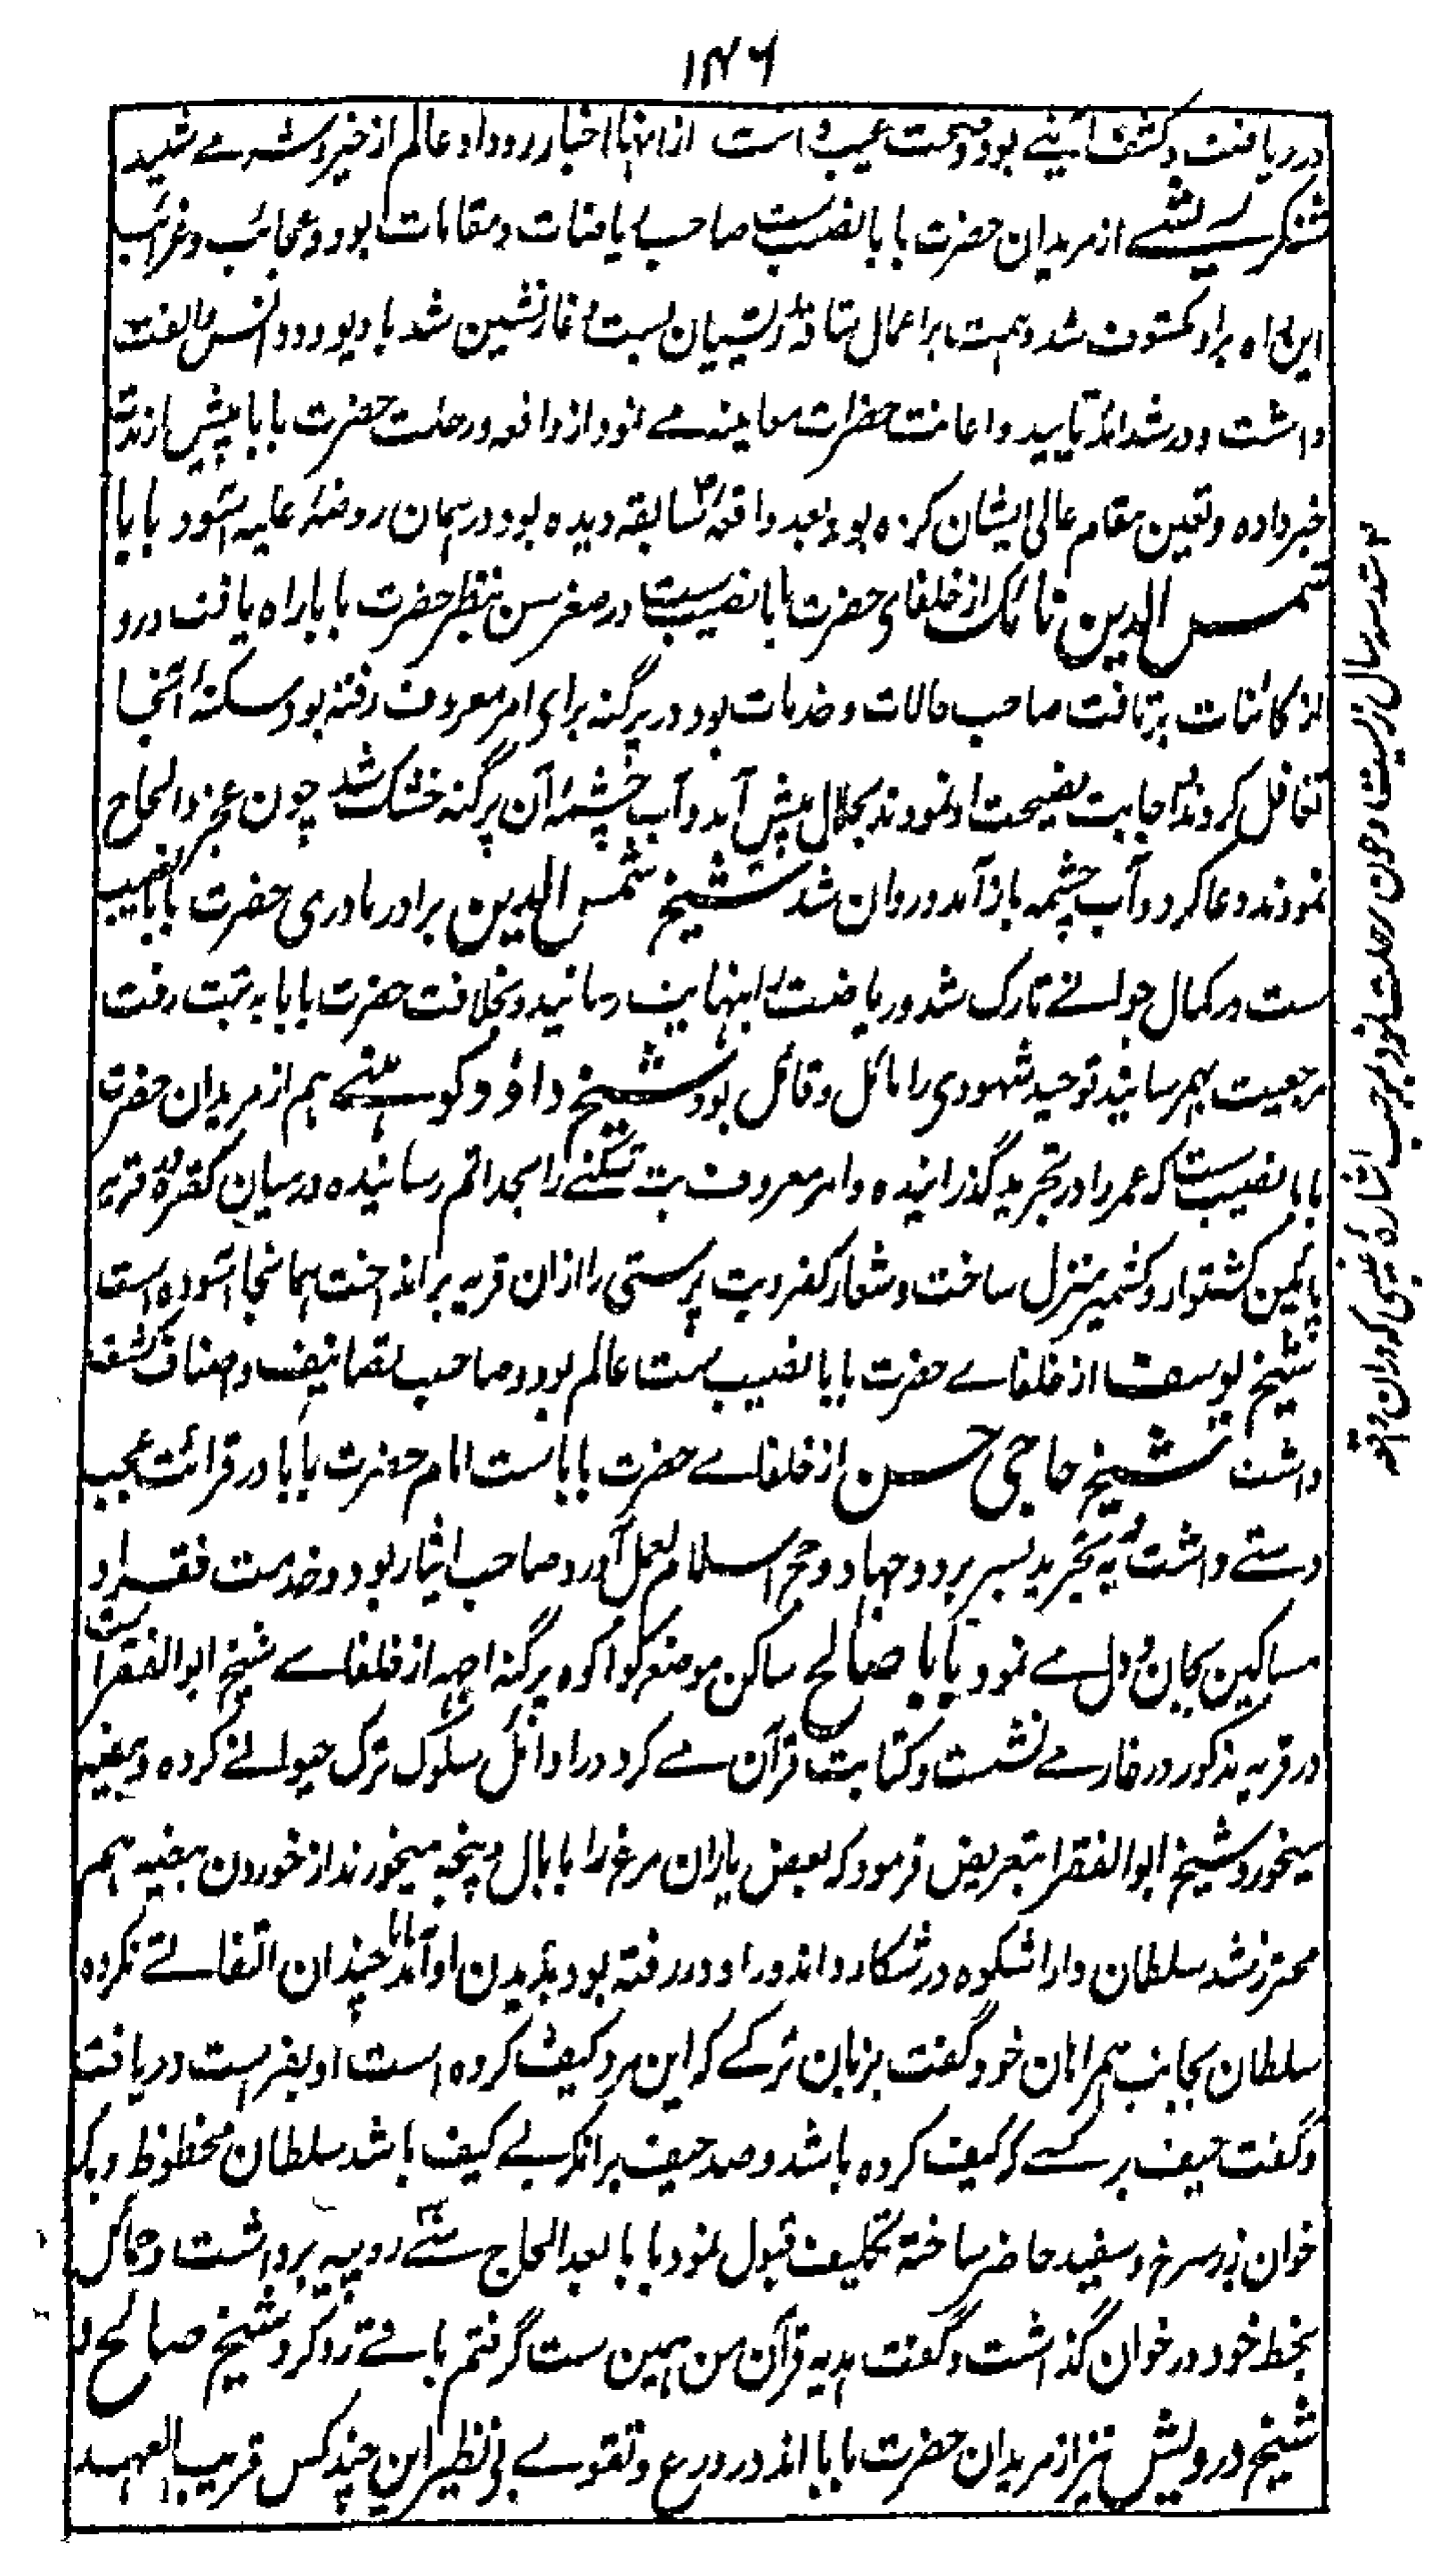 ۱۴۶
در دریافت و کشف آیتے بود و صحبت عجیب داشت از انها اخبار رو داد عالم از خیر و شر مے شنید
شنکر ریشے از مریدان حضرت بابا نصیب ست صاحب ریاضات و مقامات بود و عجائب و غرائب
این راه برو مکشوف شد و همت بر اعمال شاقهٔ ریشیان بست غار نشین شد با دیو و دد انس و الفت
داشت و در شدائد تایید و اعانت حضرات معاینه مے نمود از واقعه و رحلت حضرت بابا پیش از مدت
خبر داده و تعین مقام عالی ایشان کرده بود بعد واقعهٔ سابقه دیده بود در همان روضهٔ علیه آسود بابا
شمس الدین نائک از خلفای حضرت بابا نصیب ست در صغر سن بنظر حضرت بابا راه یافت و رو
از کائنات برتافت صاحب حالات و خدمات بود در پرگنه برای امر معروف رفته بود سکنهٔ آنجا
تغافل کردند و اجابت نصیحت او ننمودند بجلال پیش آمد و آب چشمهٔ آن پرگنه خشک شد چون عجز و الحاح
نمودند دعا کرد و آب چشمه باز آمد و روان شد شیخ شمس الدین برادر مادری حضرت بابا نصیب
ست در کمال جوانے تارک شد و ریاضت را بنهایت رسانید و بخلافت حضرت بابا به تبت رفت
مرجعیت بهم رسانید توحید شهودی را مائل و قائل بود شیخ داؤد هم از مریدان حضرت
بابا نصیب ست که عمر را در تجرید گذرانیده و امر معروف بت شکنے را بحد اتم رسانیده درمیان کفره قریه
پائین کشتوار و کشمیر منزل ساخت و شعار کفر و بت پرستی را از ان قریه برانداخت همانجا آسوده است
شیخ یوسف از خلفاے حضرت بابا نصیب ست عالم بود و صاحب تصانیف و اصناف کشف
داشت شیخ حاجی حسن از خلفاے حضرت بابا ست امام حضرت بابا در قرائت عجب
دستے داشت به تجرید بسر برد و جهاد و حج اسلام بعمل آورد صاحب ایثار بود و خدمت فقرا و
مساکین بجان و دل مے نمود بابا صالح ساکن موضع پرگنه از خلفاے شیخ ابو الفقرا ست
در قریه مذکور در غارے نشست و کتابت قرآن مے کرد در اوائل سلوک ترک حیوانے کرده و بیضه
میخورد شیخ ابو الفقرا بتعریض فرمود که بعض یاران مرغ را با بال و پنجه میخورند از خوردن بیضه هم
محترز شد سلطان دارا شکوه در شکار رفته بود بدیدن او آمد بابا چندان التفاتے نکرده
سلطان بجانب همراهان خود گفت بزبان ترکے که این مرد کیف کرده است او بفراست دریافت
و گفت حیف بر کسے که کیف کرده باشد و صد حیف بر انکه بے کیف باشد سلطان محظوظ و
خوان زر سرخ و سفید حاضر ساخته تکلیف قبول نمود بابا بعد الحاح روپیه برداشت و حمائل
بخط خود در خوان گذاشت و گفت هدیه قرآن من همین ست گرفتم باقے رد کرد شیخ صالح و
شیخ درویش نیز از مریدان حضرت بابا اند در ورع و تقوے بی نظیر این چند کس قریب العهد
سه سال زیست و چون رحلت نمود بموجب اشارهٔ غیبی که دران واقعه